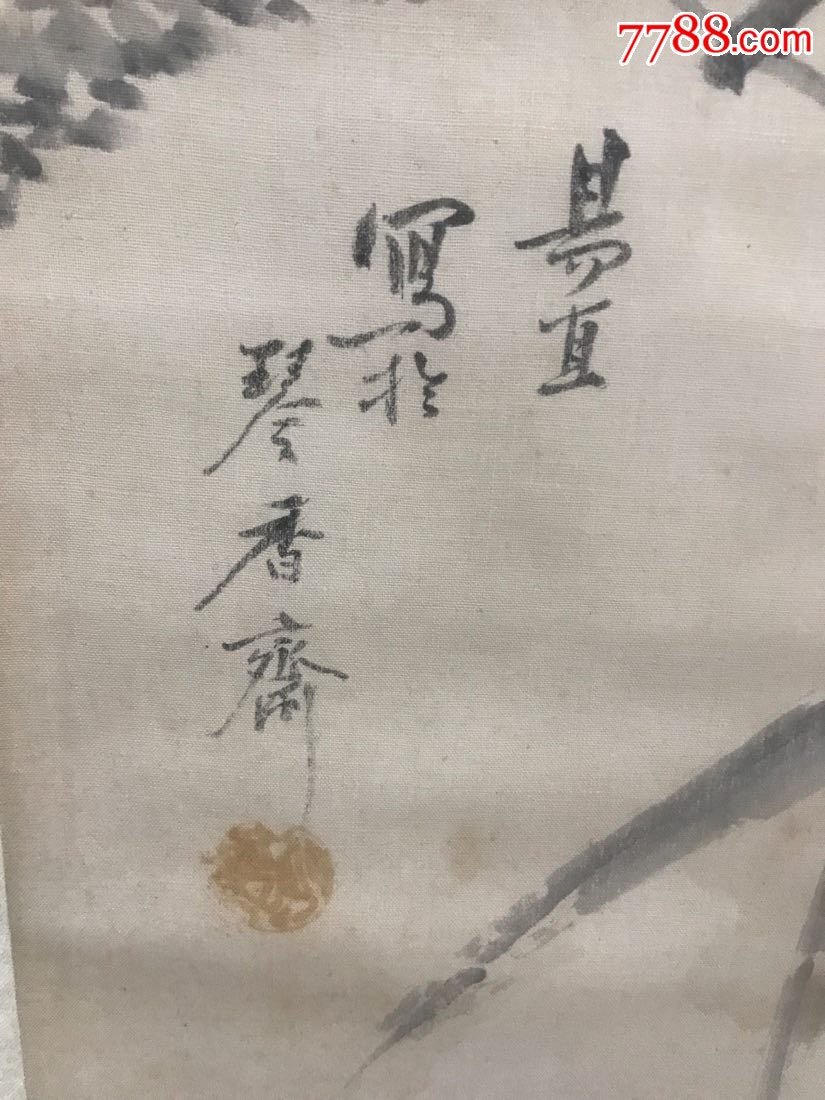 7788.com
易直
寫於
琴香齋